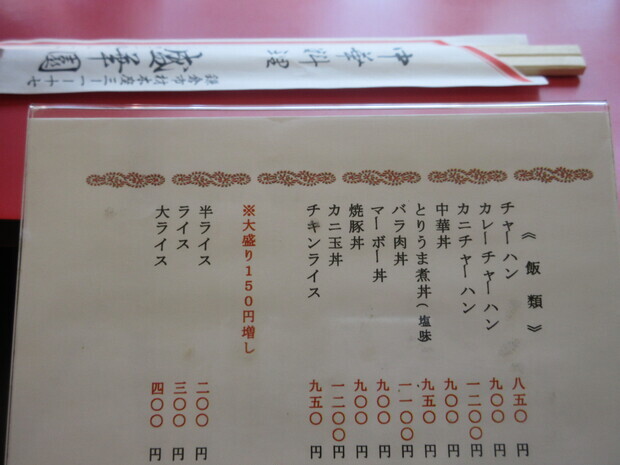 中華料理
盛華園
鎌倉市材木座三ー一ー十七
《飯類》
チャーハン 八五〇円
カレーチャーハン 九〇〇円
カニチャーハン 一二〇〇円
中華丼 九〇〇円
とりうま煮丼(塩味 九五〇円
バラ肉丼 一一〇〇円
マーボー丼 九〇〇円
焼豚丼 九〇〇円
カニ玉丼 一二〇〇円
チキンライス 九五〇円
※大盛り150円増し
半ライス 二〇〇円
ライス 三〇〇円
大ライス 四〇〇円